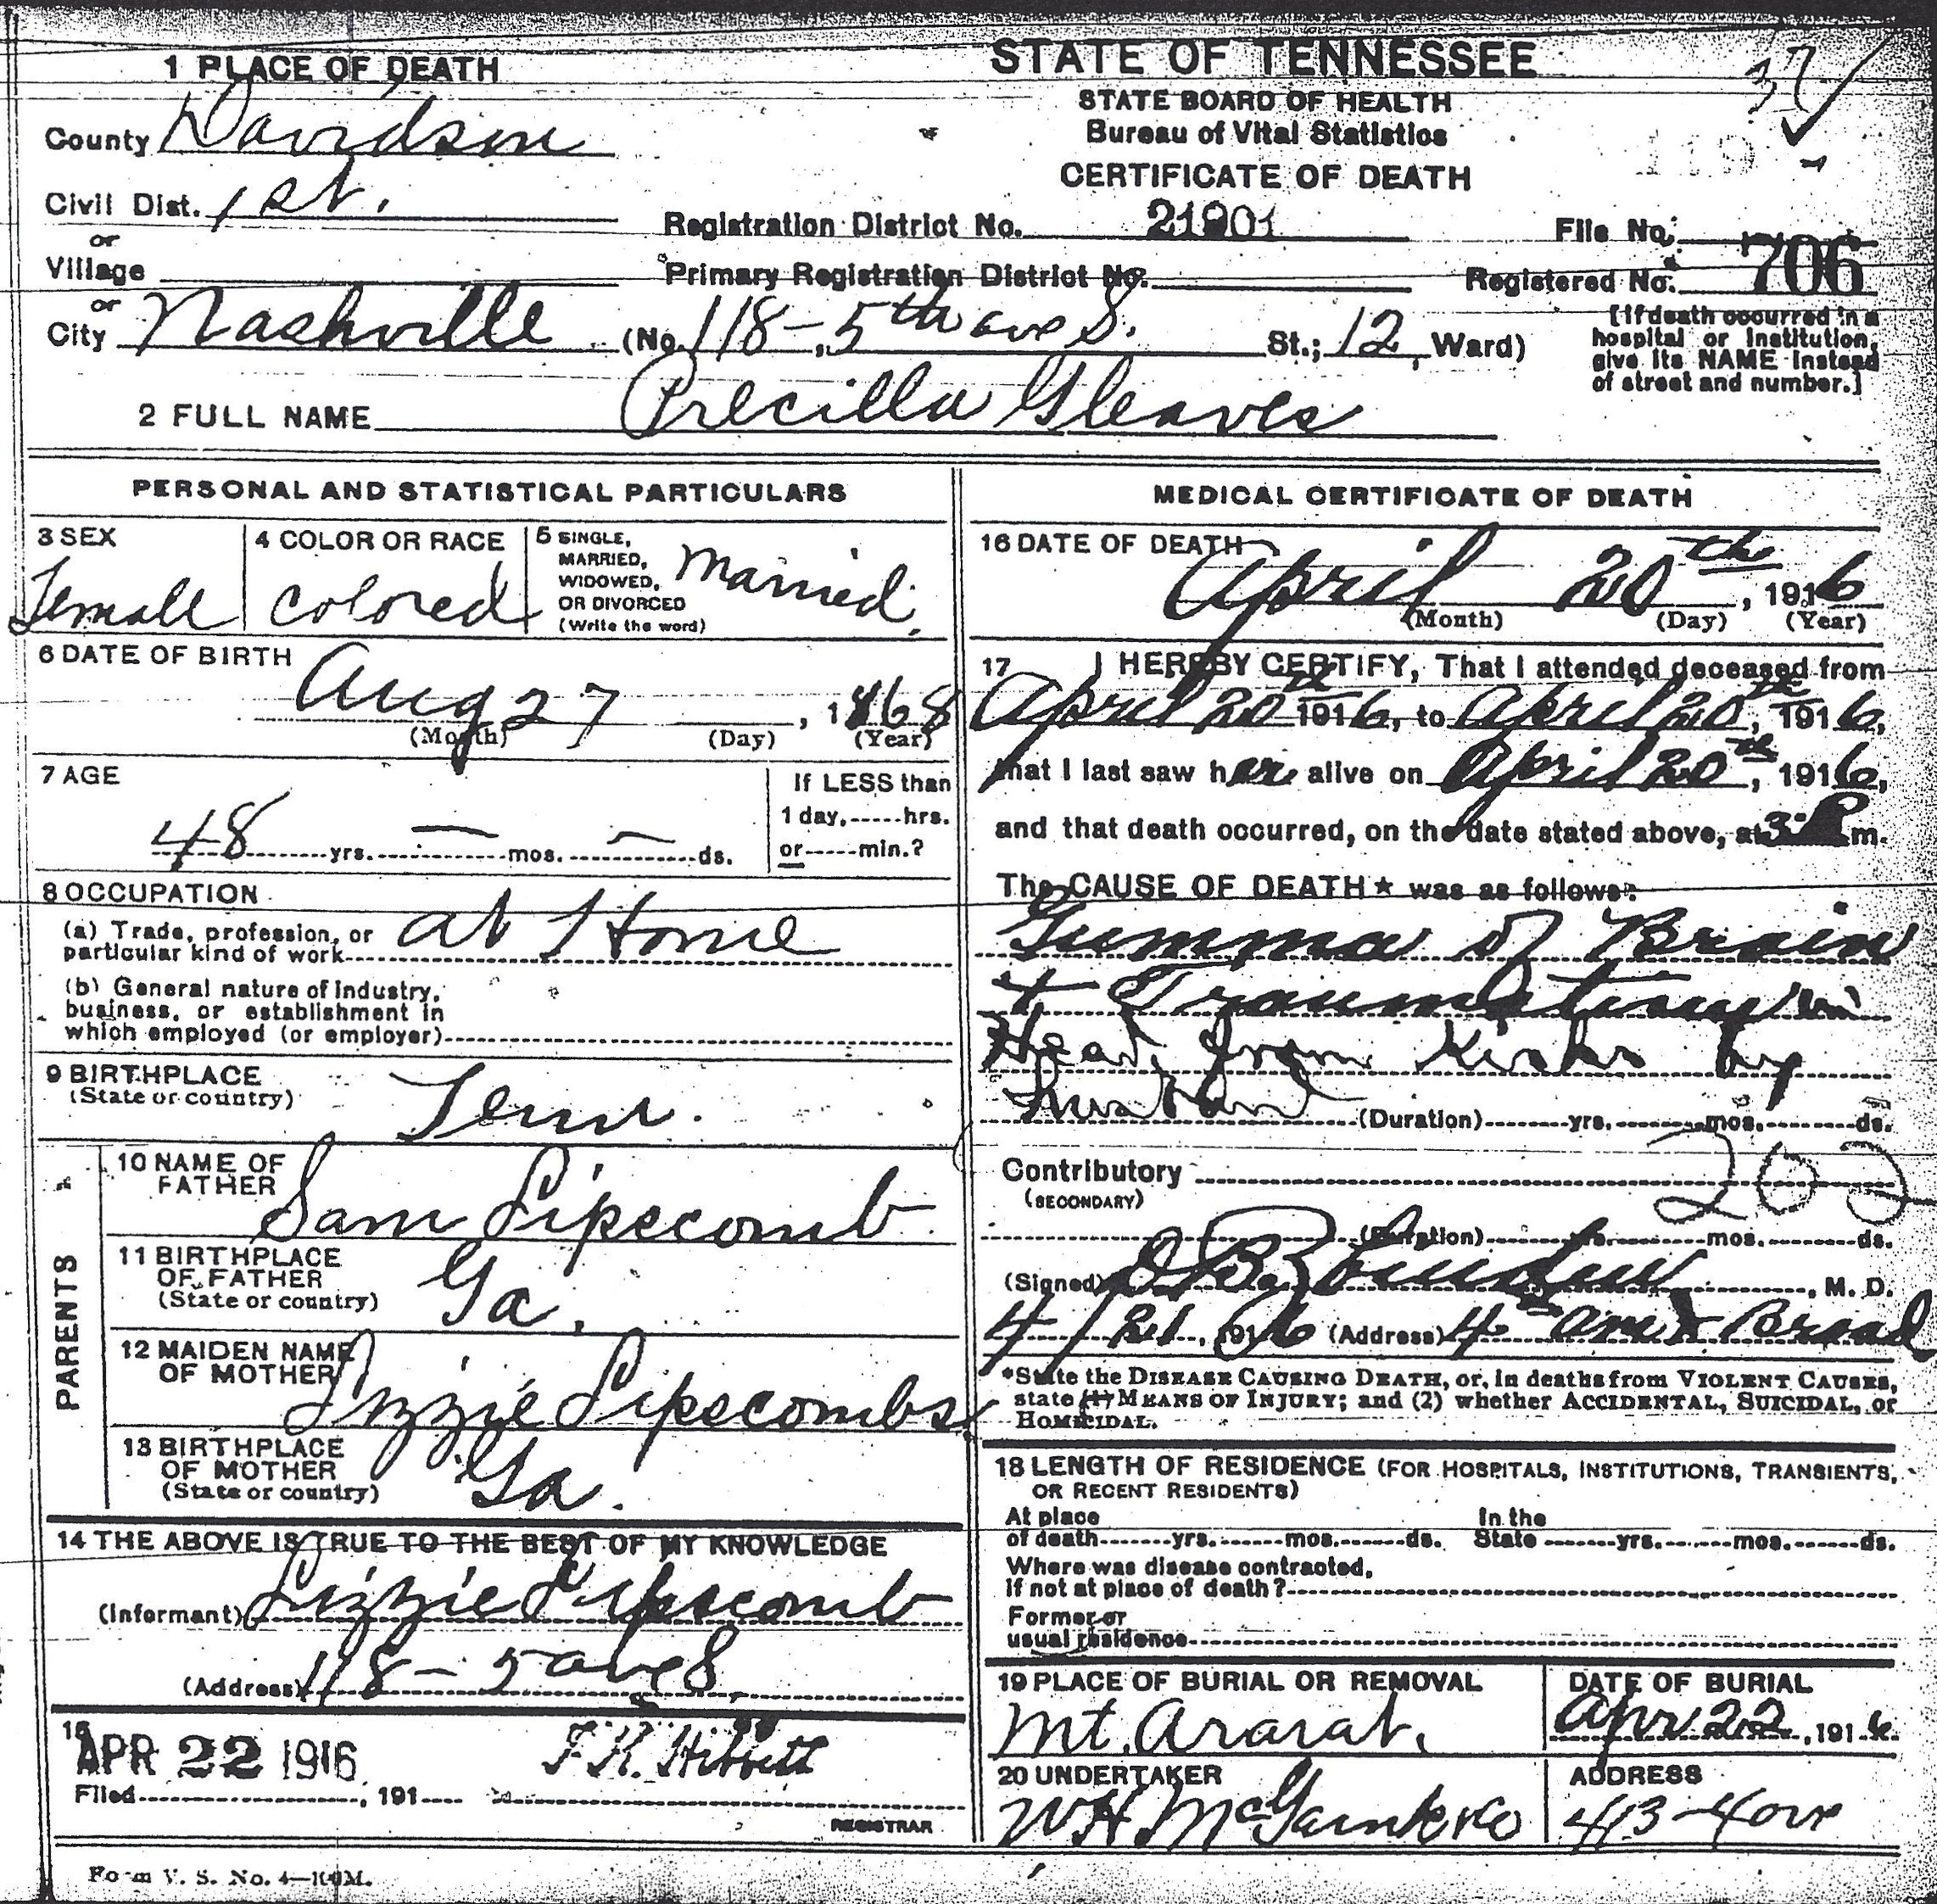 STATE OF TENNESSEE
STATE BOARD OF HEALTH
Bureau of Vital Statistics
CERTIFICATE OF DEATH
1 PLACE OF DEATH
County Davidson
Civil Dist. 1st.
or
Village
or
City Nashville (No. 118-5th ave S. St.; 12 Ward)
Registration District No. 21901 File No.
Primary Registration District No. Registered No. 706
[If death occurred in a
hospital or institution,
give its NAME instead
of street and number.]
2 FULL NAME Precilla Gleaves
PERSONAL AND STATISTICAL PARTICULARS
3 SEX Female
4 COLOR OR RACE colored
5 SINGLE,
MARRIED,
WIDOWED,
OR DIVORCED
(Write the word) Married.
6 DATE OF BIRTH
Aug 27, 1868
(Month) (Day) (Year)
7 AGE
48 yrs. — mos. — ds.
If LESS than
1 day, hrs.
or min.?
8 OCCUPATION
(a) Trade, profession, or
particular kind of work at Home
(b) General nature of industry,
business, or establishment in
which employed (or employer)
9 BIRTHPLACE
(State or country) Tenn.
PARENTS
10 NAME OF
FATHER Sam Lipscomb
11 BIRTHPLACE
OF FATHER
(State or country) Ga.
12 MAIDEN NAME
OF MOTHER Lizzie Lipscombs
13 BIRTHPLACE
OF MOTHER
(State or country) Ga.
14 THE ABOVE IS TRUE TO THE BEST OF MY KNOWLEDGE
(Informant) Lizzie Lipscomb
(Address) 118-5 ave S.
15
APR 22 1916
Filed , 191
REGISTRAR
Form V. S. No. 4—100M.
MEDICAL CERTIFICATE OF DEATH
16 DATE OF DEATH
April 20th, 1916
(Month) (Day) (Year)
17 I HEREBY CERTIFY, That I attended deceased from
April 20th 1916, to April 20th, 1916,
that I last saw her alive on April 20th, 1916,
and that death occurred, on the date stated above, at 3 P m.
The CAUSE OF DEATH* was as follows:
Gumma of Brain
+ Traumatism in
Head from Kicks by
husband (Duration) yrs. mos. ds.
Contributory
(SECONDARY)
(Duration) yrs. mos. ds.
(Signed) , M. D.
4/21, 1916 (Address) 4th ave & Broad
*State the DISEASE CAUSING DEATH, or, in deaths from VIOLENT CAUSES,
state (1) MEANS OF INJURY; and (2) whether ACCIDENTAL, SUICIDAL, or
HOMICIDAL.
18 LENGTH OF RESIDENCE (FOR HOSPITALS, INSTITUTIONS, TRANSIENTS,
OR RECENT RESIDENTS)
At place In the
of death yrs. mos. ds. State yrs. mos. ds.
Where was disease contracted,
if not at place of death?
Former or
usual residence
19 PLACE OF BURIAL OR REMOVAL
Mt. Ararat.
DATE OF BURIAL
Apr 22, 1916.
20 UNDERTAKER
ADDRESS